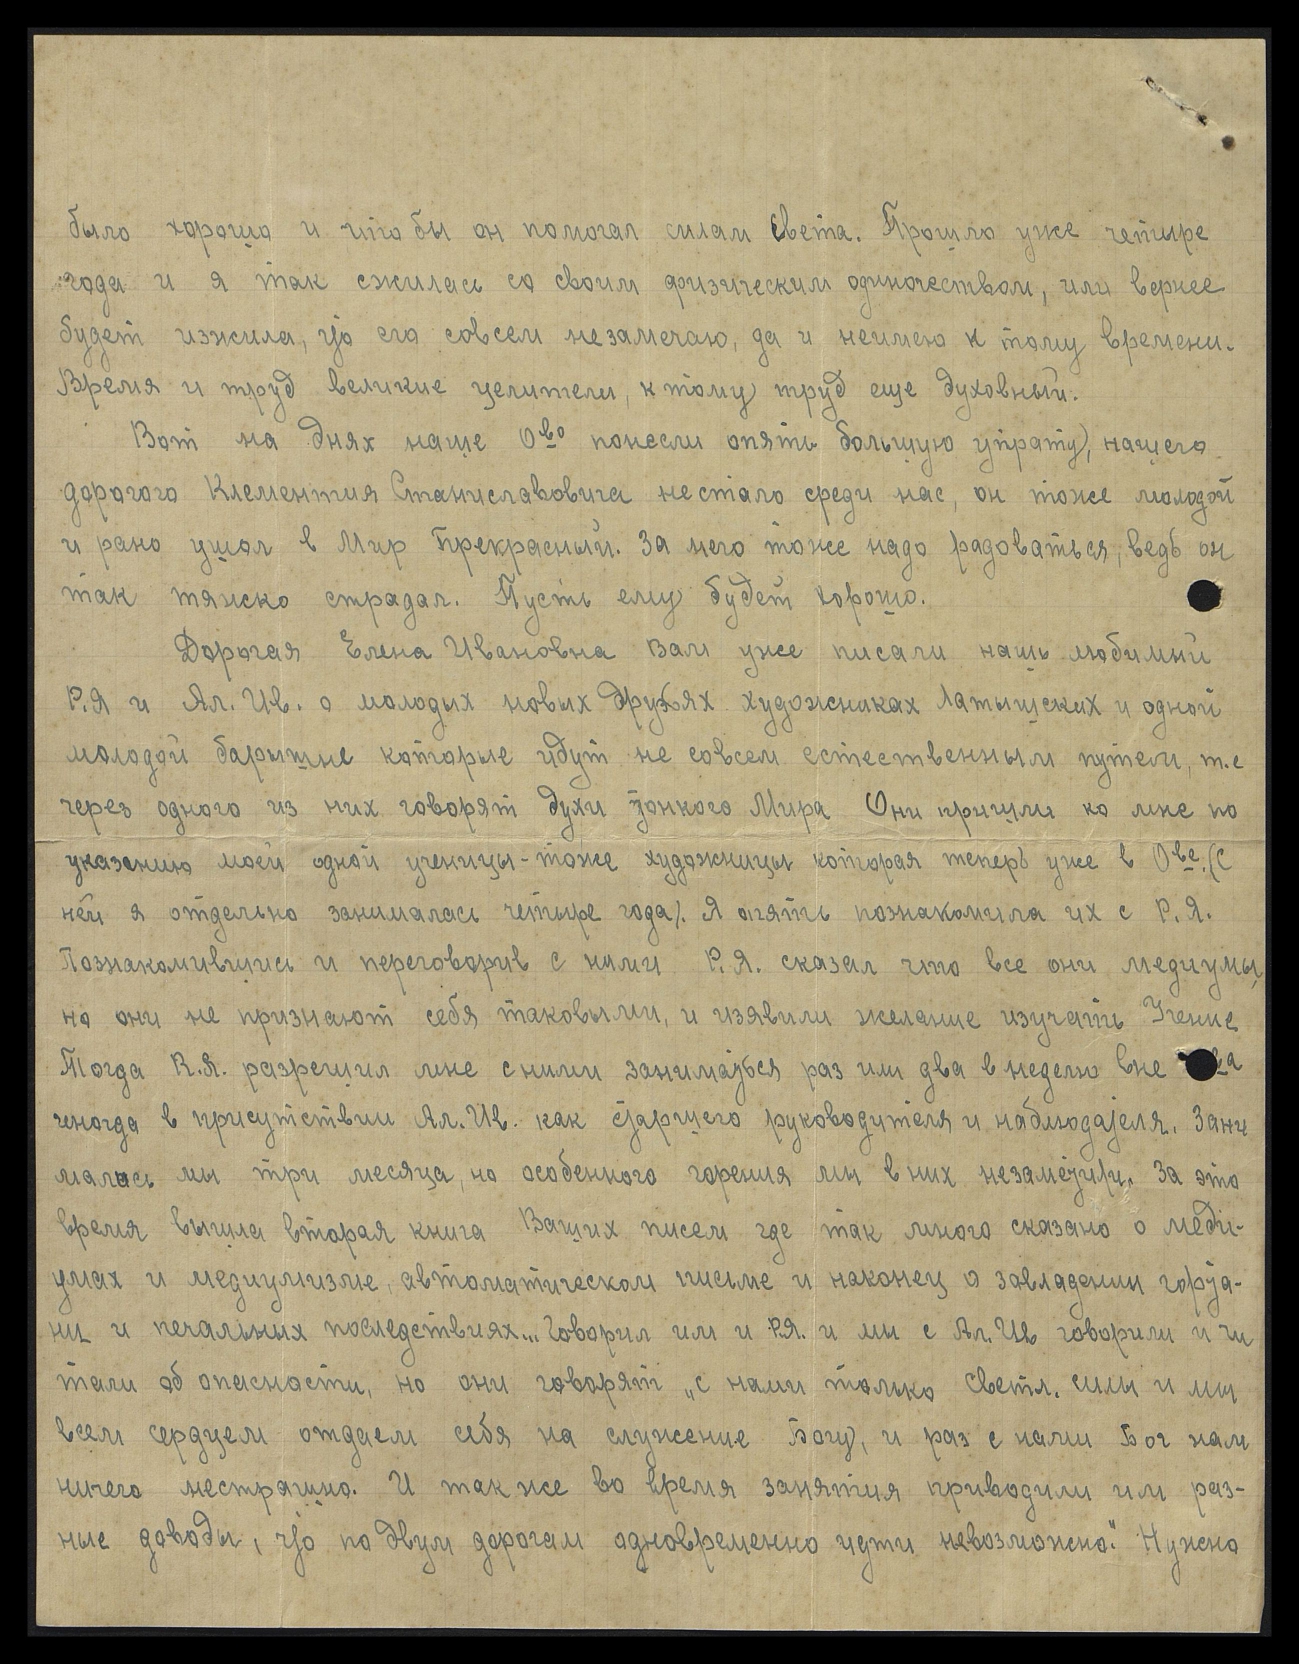 было хорошо и что бы он помогал силам Света. Прошло уже четыре
года и я так сжилась со своим физическим одиночеством, или вернее
будет изжила, что его совсем незамечаю, да и неимею к тому времени.
Время и труд великие целители, к тому труд еще духовный.
Вот на днях наше О-во понесли опять большую утрату, нашего
дорогого Клементия Станиславовича нестало среди нас, он тоже молодой
и рано ушол в Мир Прекрасный. За него тоже надо радоваться, ведь он
так тяжско страдал. Пусть ему будет хорошо.
Дорогая Елена Ивановна Вам уже писали нашь любимый
Р.Я и Ал. Ив. о молодых новых друзьях художниках Латышских и одной
молодой барышне которые идут не совсем естественным путем, т.е
через одного из них говорят духи Тонкого Мира Они пришли ко мне по
указению моей одной ученицы - тоже художницы которая теперь уже в О-ве. (С
ней я отдельно занималась четыре года). Я опять познакомила их с Р.Я.
Познакомившись и переговорив с ними Р.Я. сказал что все они медиумы,
но они не признают себя таковыми, и изявили желание изучать Учение
Тогда Р.Я. разрешил мне с ними заниматься раз или два в неделю вне ва
иногда в присутствии Ал. Ив. как старшего руководителя и наблюдателя. Зани
мались мы три месяца, но особенного горения мы в них незаметили. За это
время вышла вторая книга Ваших писем где так много сказано о меди-
умах и медиумизме, автоматическом письме и наконец о завладении горта-
ни и печальных последствиях... Говорил им и Р.Я. и мы с Ал. Ив говорили и чи
тали об опасности, но они говорят „с нами только Светл. силы и мы
всем сердцем отдаем себя на служение Богу, и раз с нами Бог нам
ничего нестрашно. И так же во время занятия приводили им раз-
ные доводы, что по двум дорогам одновременно идти невозможно." Нужно